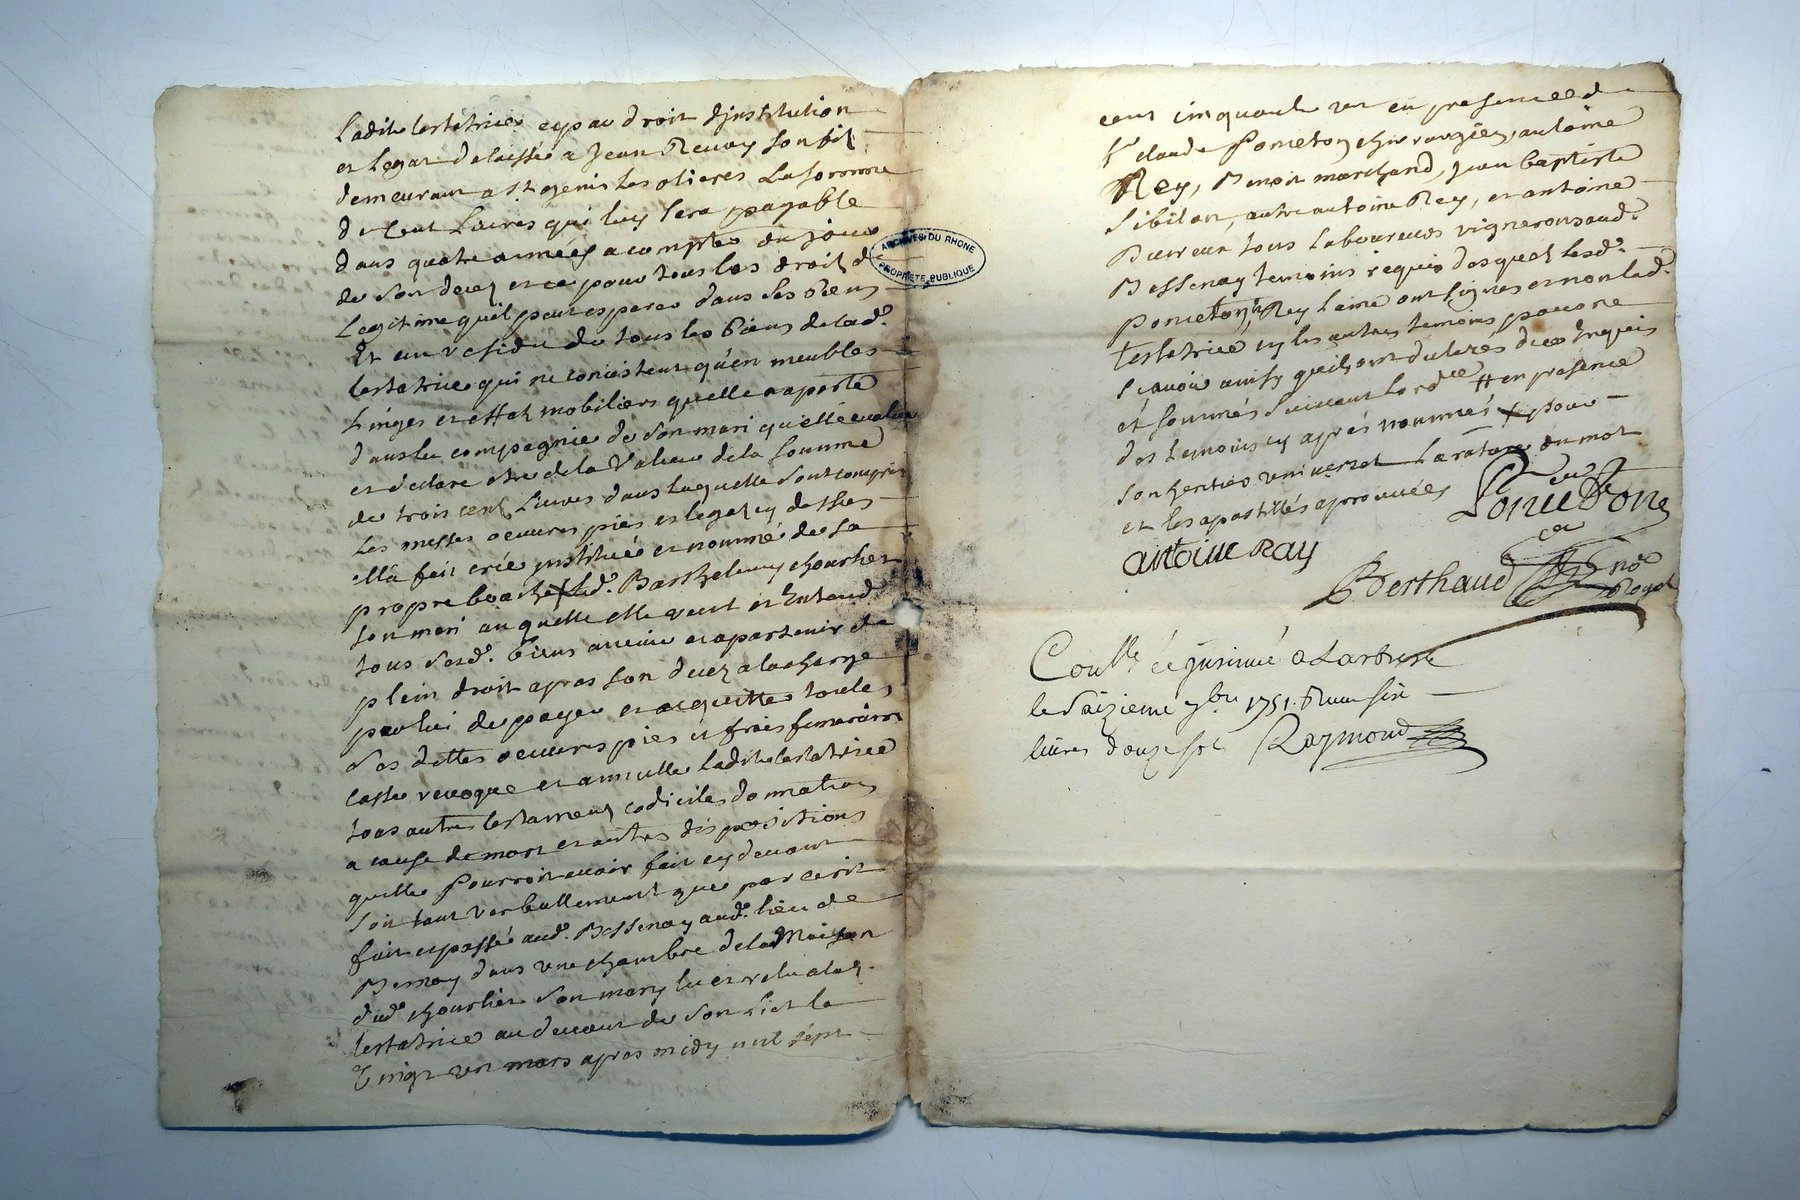 Ladite testatrice ey par droit d'institution
et legat delaissé a Jean Reuay son fil
demeurant a St genis les olieres La somme
de Cent Livres qui luy sera payable
dans quatre années a compter du jour
de son decez et ce pour tous les droit de
Legitime quil peut esperer dans ses biens
Et au residu de tous les biens de lad.e
testatrice qui ne consistent qu'en meubles
Linges et effet mobiliers quelle a aporté
dans la compagnie de son mari qu'elle evalue
et declare etre de la Valeur de la somme
de trois cent Livres dans laquelle sont compris
les messes oeuvres pies et legat cy dessus
ella fait créé institué et nommé de sa
propre bouche led. Barthelemy chourlier
son mari auquelle elle veut et Entend
tous sesd. biens arrive et apartenir de
plein droit apres son decez a la charge
par lui de payer et acquitter toutes
ses dettes oeuvres pies et frais funeraires
casse revoque et annulle Ladite testatrice
tous autres testament codiciles donnation
a cause de mort et autres dispositions
quelle pourroit avoir fait cy devant
soit tant verballement que par ecrit
fait et passé aud. Bessenay aud. lieu de
Bernay dans une chambre de la Maison
dud. chourlier son mary lu et relu a lad.
testatrice au devant de son lict le
Vingt un mars apres midy mil sept
ARCHIVES DU RHONE
PROPRIETE PUBLIQUE
cent cinquante un en presence de
Sr claude Ponceton chirurgien, antoine
Rey, Benoit marchand, Jean baptiste
Sibilan, autre antoine Rey, et antoine
tous Laboureurs vignerons aud.
Bessenay temoins requis desquel lesd.
Ponceton, Rey laine ont signes et non lad.
testatrice ny les autres temoins pour ne
scavoir ainsy queils ont declarés de ce enquis
et sommés suivant lordce # en presence
des temoins cy aprés nommés x pour
son heritier universel La rature du mot
et les apostilles aprouvées Ponceton
antoine Ray
Berthaud no.re Royal
Con.llé & insinué a Larbresle
le Saizieme 1751. Reçu six
livres douze sol Raymond